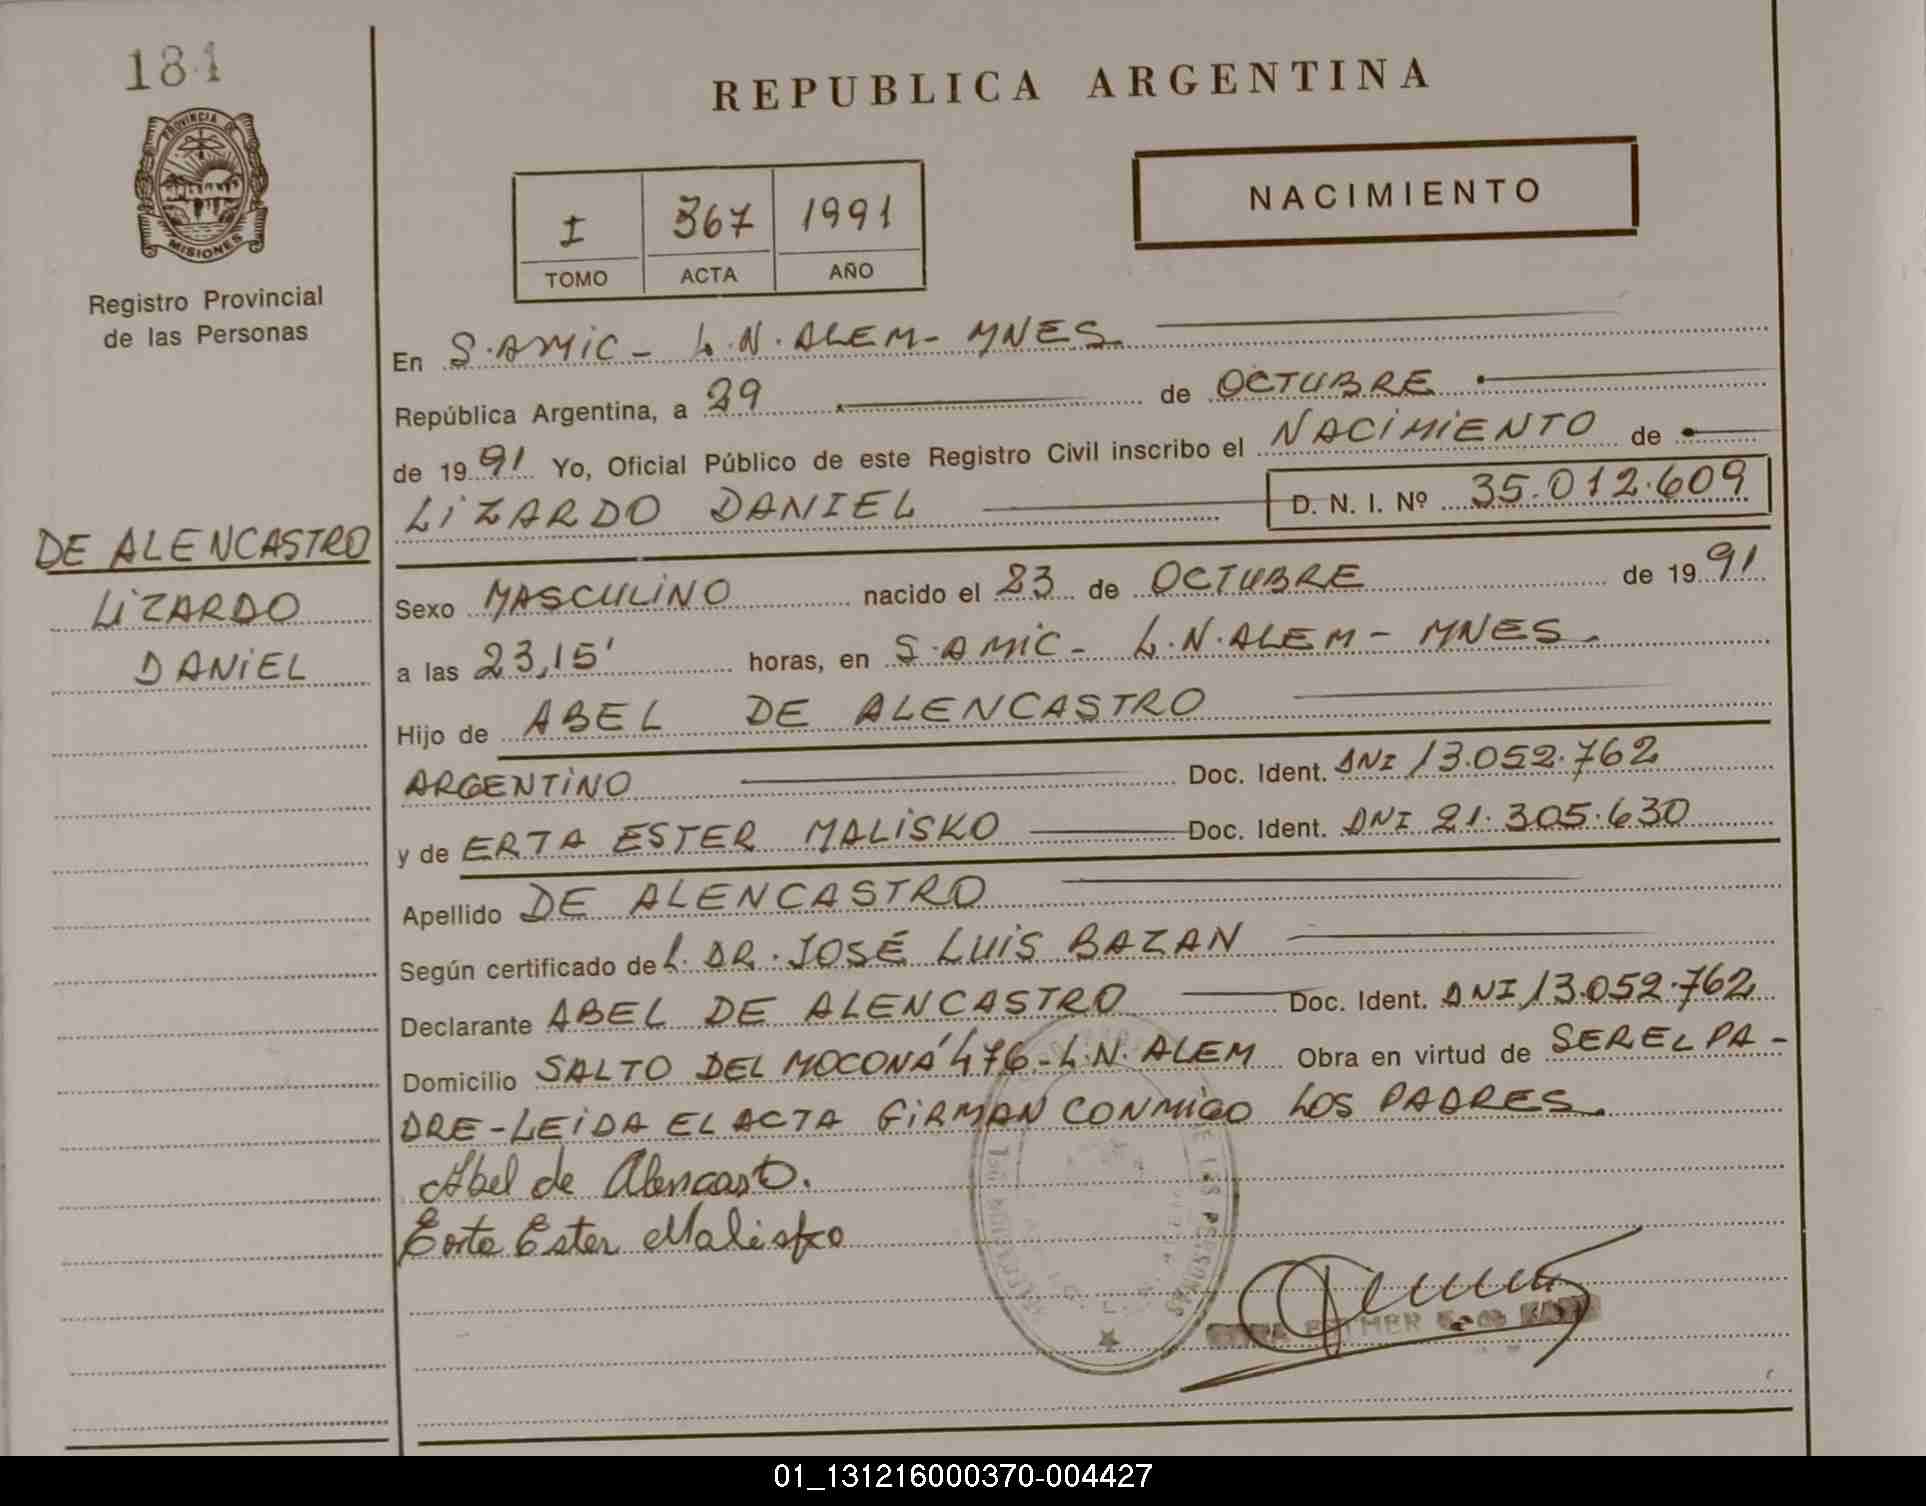 184
PROVINCIA DE
MISIONES
Registro Provincial
de las Personas
DE ALENCASTRO
LIZARDO
DANIEL
REPUBLICA ARGENTINA
I 367 1991
TOMO ACTA AÑO
NACIMIENTO
En S.AMIC - L.N.ALEM - MNES.
República Argentina, a 29 de OCTUBRE
de 1991 Yo, Oficial Público de este Registro Civil inscribo el NACIMIENTO de
LIZARDO DANIEL D. N. I. Nº 35.012.609
Sexo MASCULINO nacido el 23 de OCTUBRE de 1991
a las 23,15' horas, en S.AMIC - L.N.ALEM - MNES.
Hijo de ABEL DE ALENCASTRO
ARGENTINO Doc. Ident. DNI 13.052.762
y de ERTA ESTER MALISKO Doc. Ident. DNI 21.305.630
Apellido DE ALENCASTRO
Según certificado del. DR. JOSÉ LUIS BAZAN
Declarante ABEL DE ALENCASTRO Doc. Ident. DNI 13.052.762
Domicilio SALTO DEL MOCONÁ 476 - L.N. ALEM Obra en virtud de SER EL PA-
DRE - LEIDA EL ACTA FIRMAN CONMIGO LOS PADRES.
Abel de Alencastro.
Erta Ester Malisko
ESTHER
01_131216000370-004427